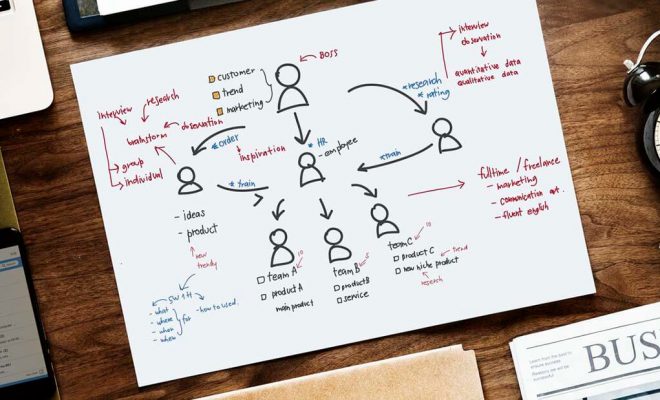 BOSS
customer
trend
marketing
interview
observation
quantitative data
qualitative data
* research
* rating
interview
research
brainstorm
observation
group
individual
* order
inspiration
* HR
- employee
* train
* train
- ideas
- product
new
trendy
5W 1H
- what
- where
- when
for
- how to used.
fulltime / freelance
- marketing
- communication
- fluent english
team A
10
product A
main product
team B
5
product B
service
team C
10
product C
trend
new niche product
research
BUS